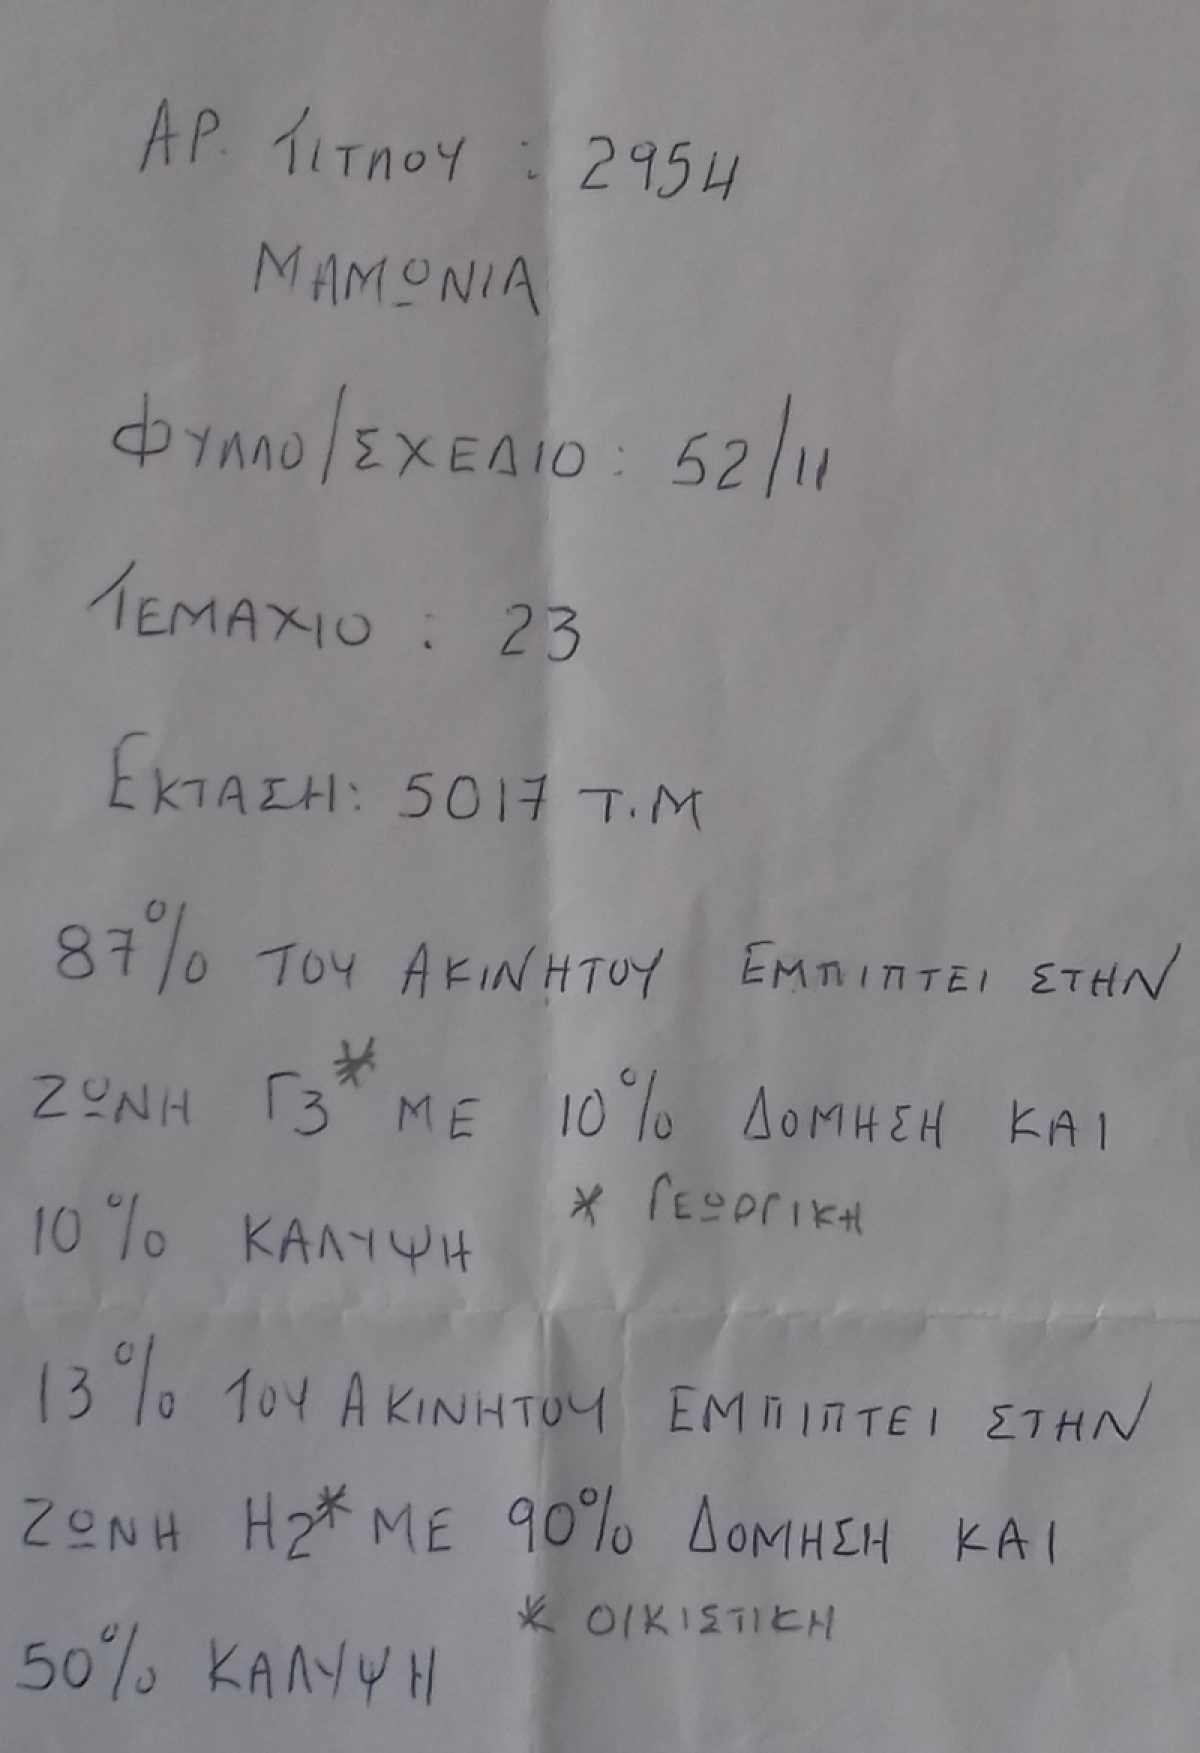 ΑΡ. ΤΙΤΛΟΥ : 2954
ΜΑΜΩΝΙΑ
ΦΥΛΛΟ/ΣΧΕΔΙΟ : 52/11
ΤΕΜΑΧΙΟ : 23
ΕΚΤΑΣΗ: 5017 Τ.Μ
87% ΤΟΥ ΑΚΙΝΗΤΟΥ ΕΜΠΙΠΤΕΙ ΣΤΗΝ
ΖΩΝΗ Γ3* ΜΕ 10% ΔΟΜΗΣΗ ΚΑΙ
10% ΚΑΛΥΨΗ * ΓΕΩΡΓΙΚΗ
13% ΤΟΥ ΑΚΙΝΗΤΟΥ ΕΜΠΙΠΤΕΙ ΣΤΗΝ
ΖΩΝΗ Η2* ΜΕ 90% ΔΟΜΗΣΗ ΚΑΙ
50% ΚΑΛΥΨΗ * ΟΙΚΙΣΤΙΚΗ